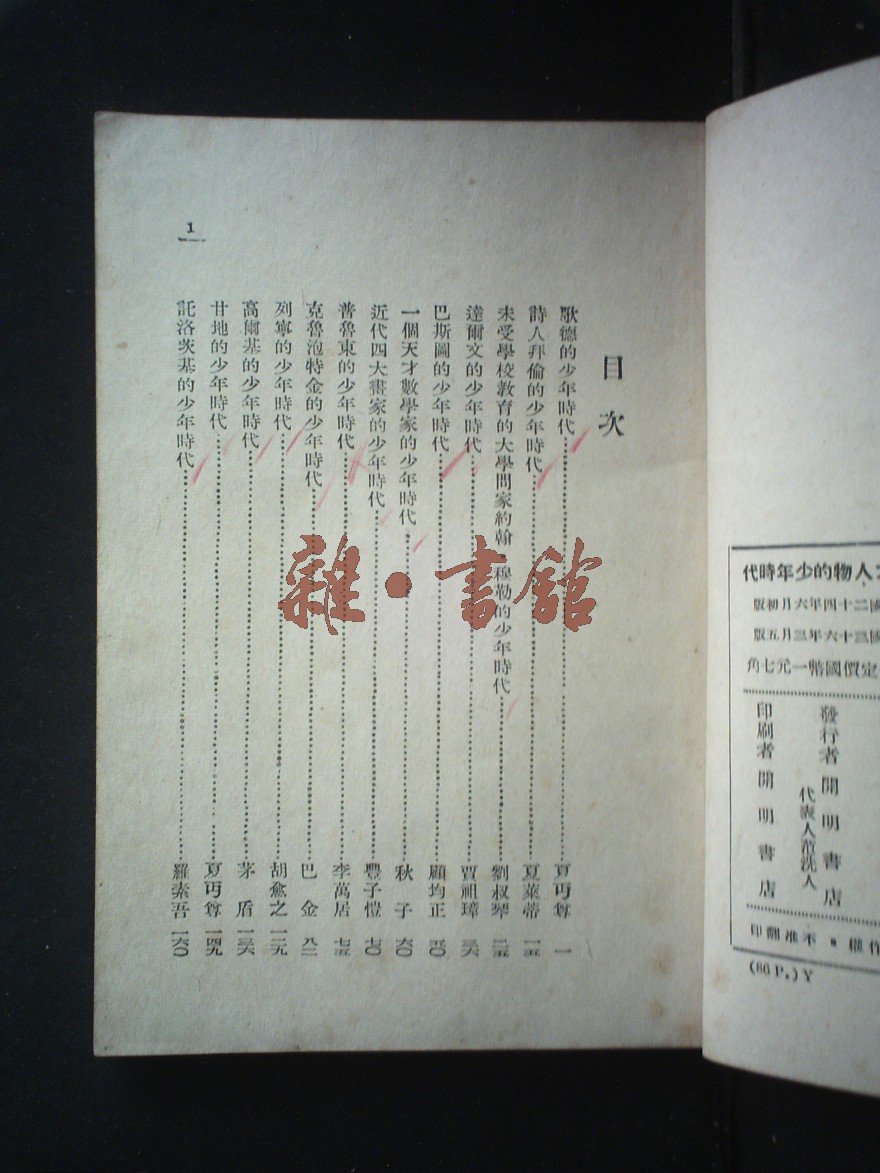 目次
歌德的少年時代 夏丏尊 一
詩人拜倫的少年時代 夏萊蒂 一五
未受學校教育的大學問家約翰·穆勒的少年時代 劉叔琴 二五
達爾文的少年時代 賈祖璋 三六
巴斯圖的少年時代 顧均正 五〇
一個天才數學家的少年時代 秋子 六〇
近代四大畫家的少年時代 豐子愷 七〇
普魯東的少年時代 李萬居 七五
克魯泡特金的少年時代 巴金 八二
列寧的少年時代 胡愈之 一二九
高爾基的少年時代 茅盾 一三六
甘地的少年時代 夏丏尊 一四九
託洛茨基的少年時代 羅素吾 一六〇
1
雜·書館
人物的少年時代
國二十四年六月初版
國三十六年三月五版
定價國幣一元七角
發行者 開明書店
代表人范洗人
印刷者 開明書店
作權 不准翻印
(86 P.) Y